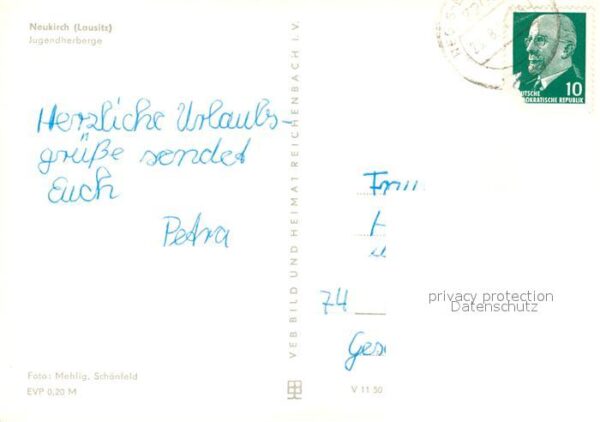 Neukirch (Lausitz)
Jugendherberge
Herzliche Urlaubs-
grüße sendet
Euch
Petra
Foto: Mehlig, Schönfeld
EVP 0,20 M
VEB BILD UND HEIMAT REICHENBACH I.V.
V 11 50
10
DEUTSCHE
DEMOKRATISCHE REPUBLIK
74
privacy protection
Datenschutz